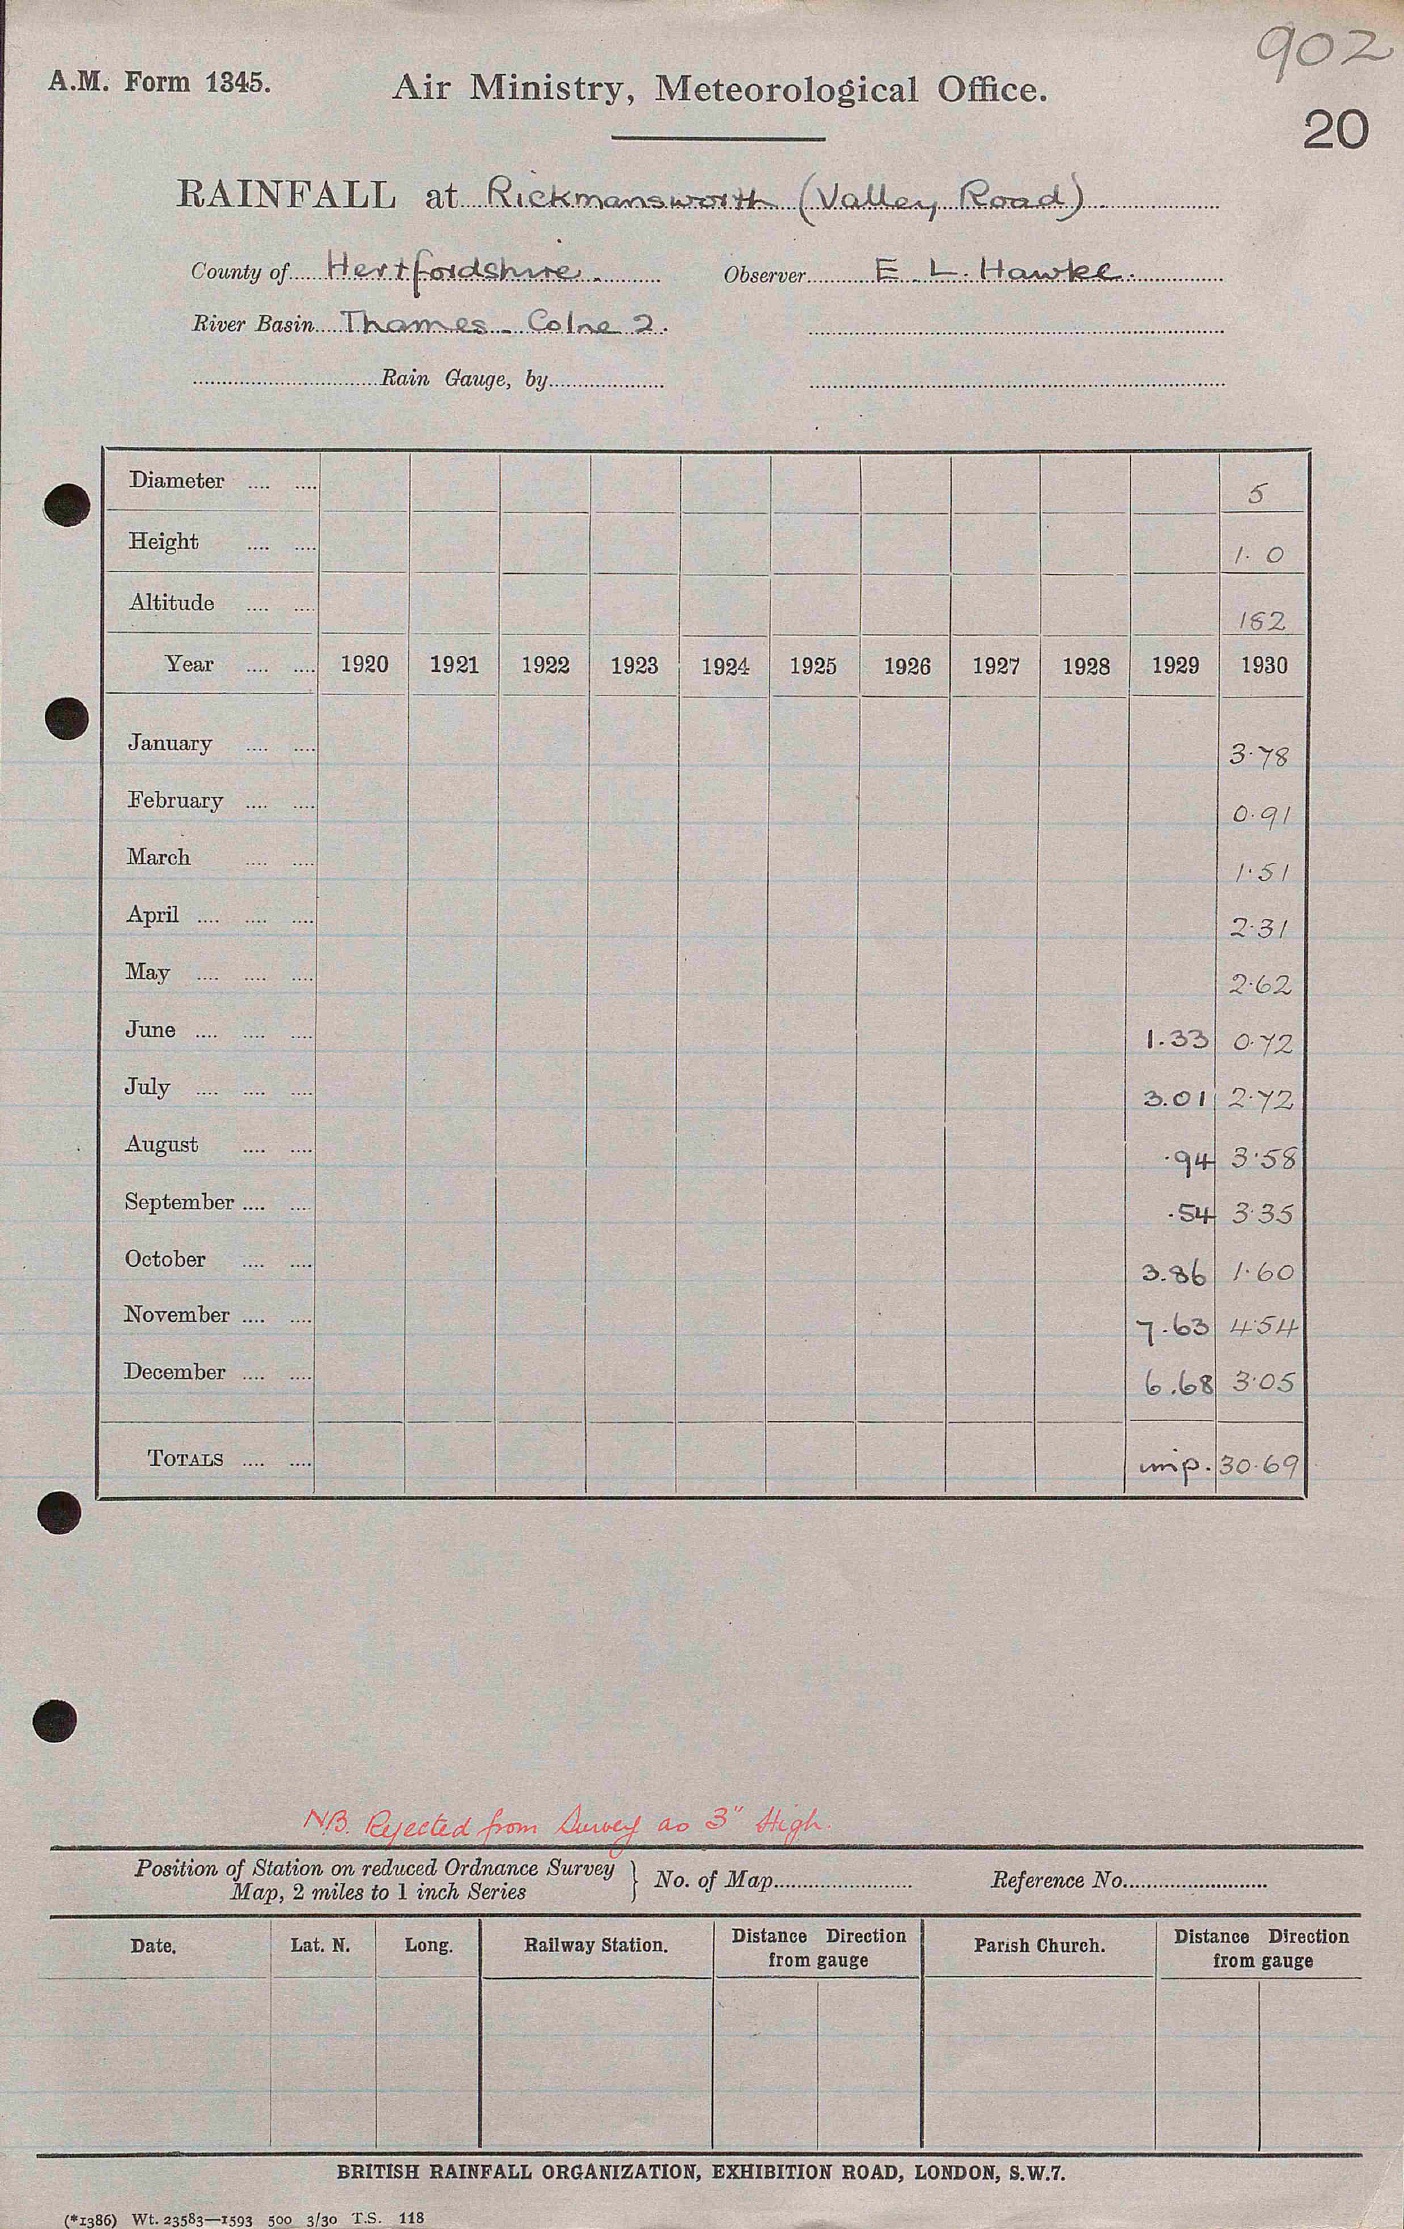 902
A.M. Form 1345. Air Ministry, Meteorological Office.
20
RAINFALL at Rickmansworth (Valley Road)
County of Hertfordshire. Observer E. L. Hawke.
River Basin Thames - Colne 2.
Rain Gauge, by
Diameter .... .... 5
Height .... .... 1.0
Altitude .... .... 182
Year .... .... 1920 1921 1922 1923 1924 1925 1926 1927 1928 1929 1930
January .... .... 3.78
February .... .... 0.91
March .... .... 1.51
April .... .... .... 2.31
May .... .... .... 2.62
June .... .... .... 1.33 0.72
July .... .... .... 3.01 2.72
August .... .... .94 3.58
September .... .... .54 3.35
October .... .... 3.86 1.60
November .... .... 7.63 4.54
December .... .... 6.68 3.05
TOTALS .... .... imp. 30.69
NB. Rejected from Survey as 3" High.
Position of Station on reduced Ordnance Survey
Map, 2 miles to 1 inch Series } No. of Map Reference No.
Date. Lat. N. Long. Railway Station. Distance Direction from gauge Parish Church. Distance Direction from gauge
BRITISH RAINFALL ORGANIZATION, EXHIBITION ROAD, LONDON, S.W.7.
(*1386) Wt. 23583—1593 500 3/30 T.S. 118